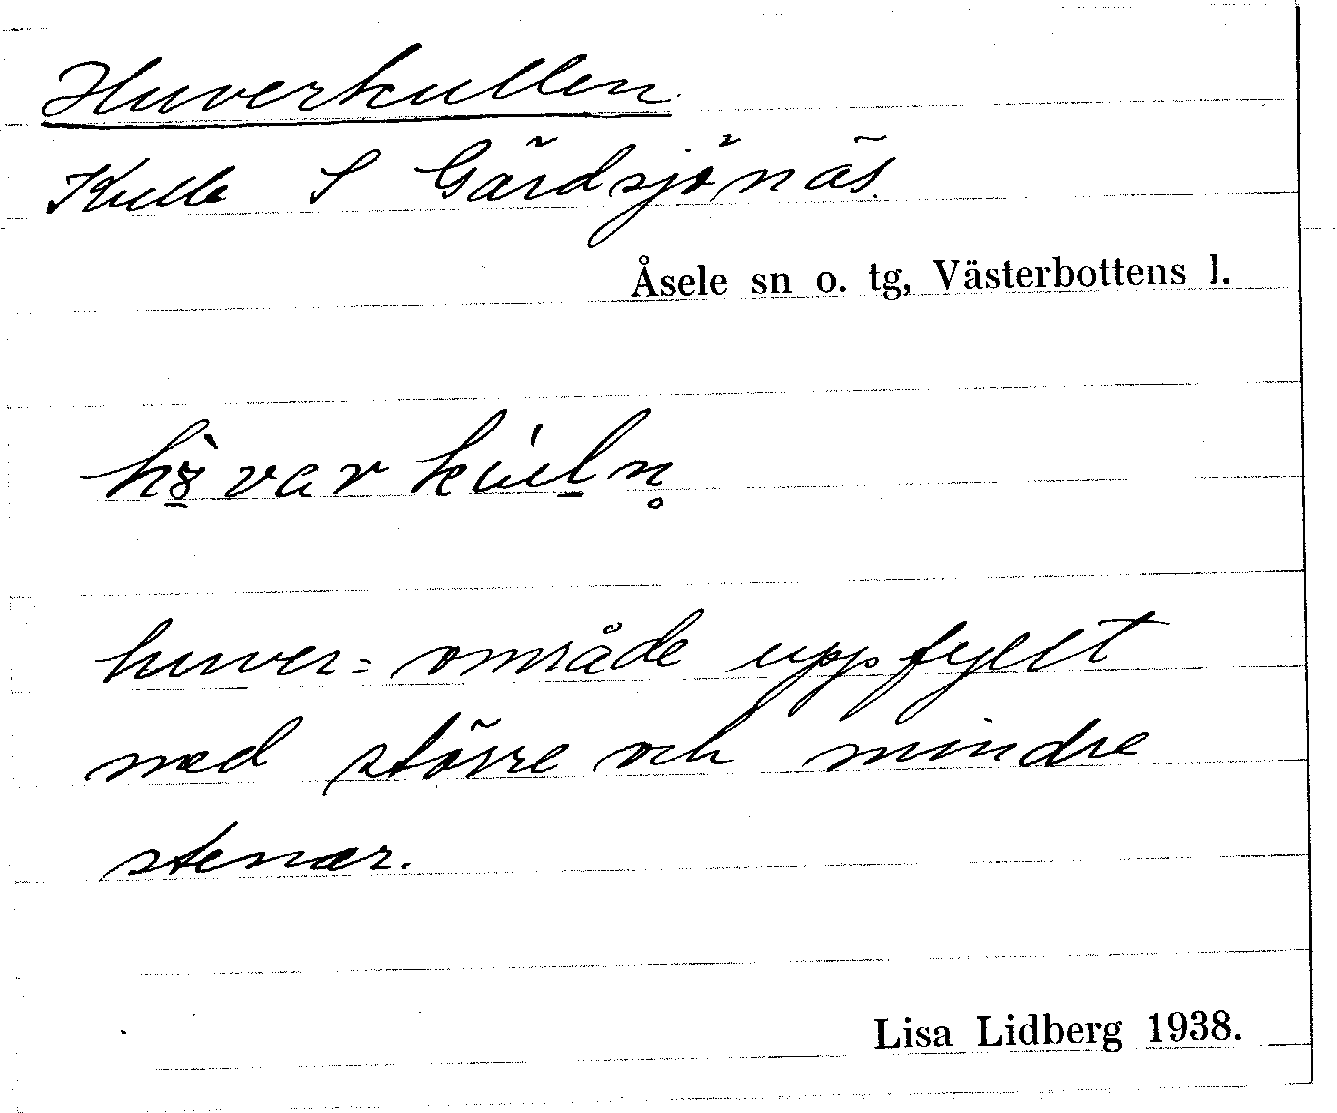 Huverkullen.
Kulle S Gärdsjönäs.
Åsele sn o. tg, Västerbottens l.
huver = område uppfyllt
med större och mindre
stenar.
Lisa Lidberg 1938.